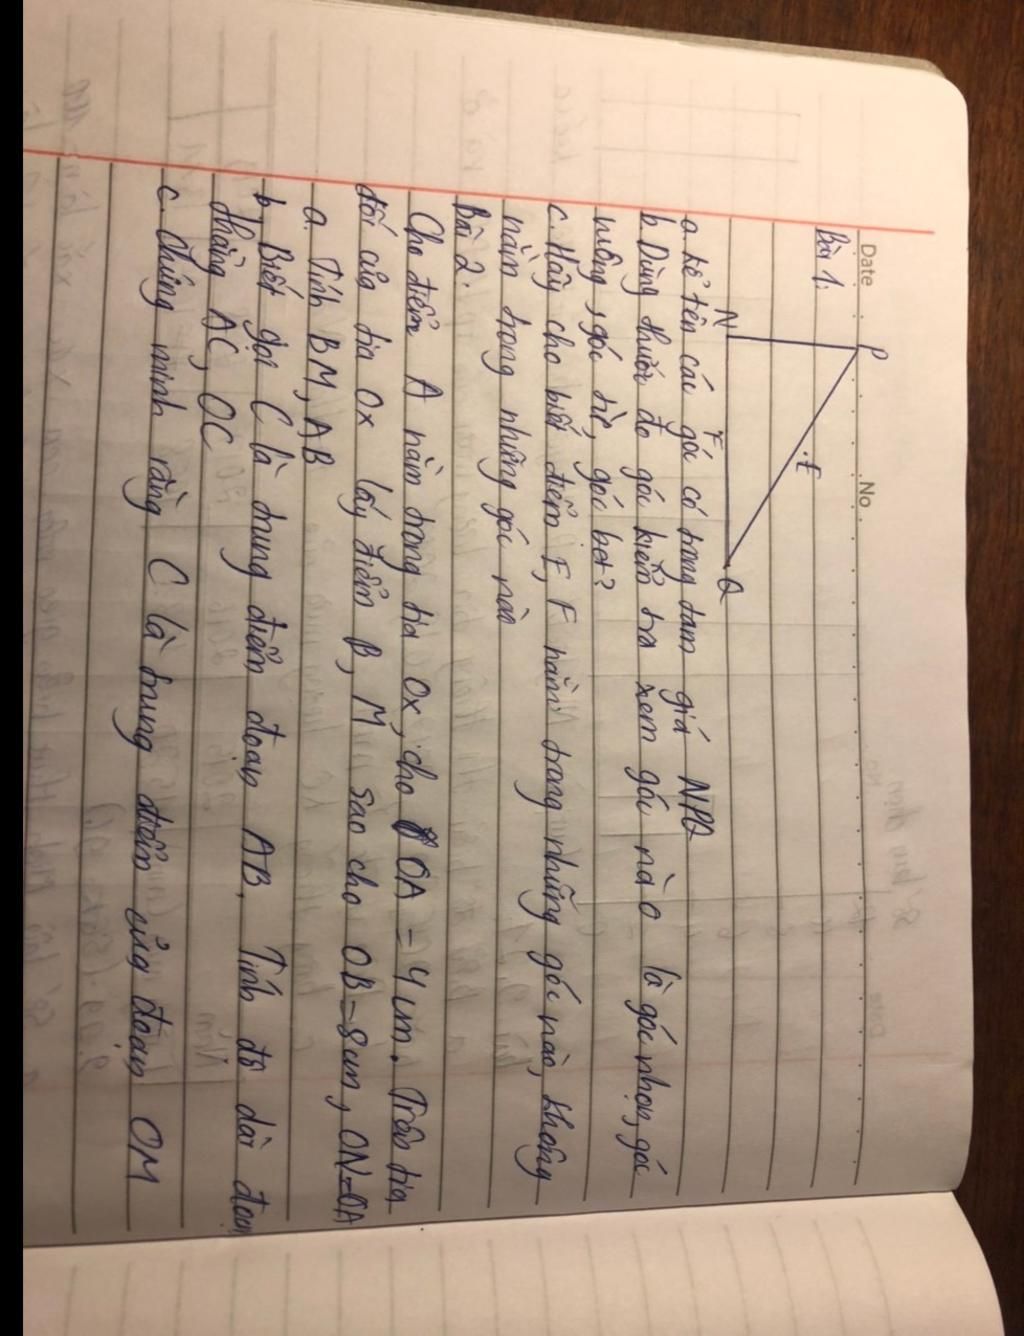 Date No.
Bài 1.
P
.E
N F Q
a. Kể tên các góc có trong tam giá NPQ
b. Dùng thước đo góc kiểm tra xem góc nào là góc nhọn, góc
vuông, góc tù, góc bẹt?
c. Hãy cho biết điểm E, F nằm trong những góc nào, không
nằm trong những góc nào
Bài 2.
Cho điểm A nằm trong tia Ox, cho OA = 4 cm. Trên tia
đối của tia Ox lấy điểm B, M sao cho OB = 8cm, ON=OA
a. Tính BM, AB
b, Biết gọi C là trung điểm đoạn AB. Tính độ dài đoạn
thẳng AC, OC
c. Chứng minh rằng C là trung điểm của đoạn OM